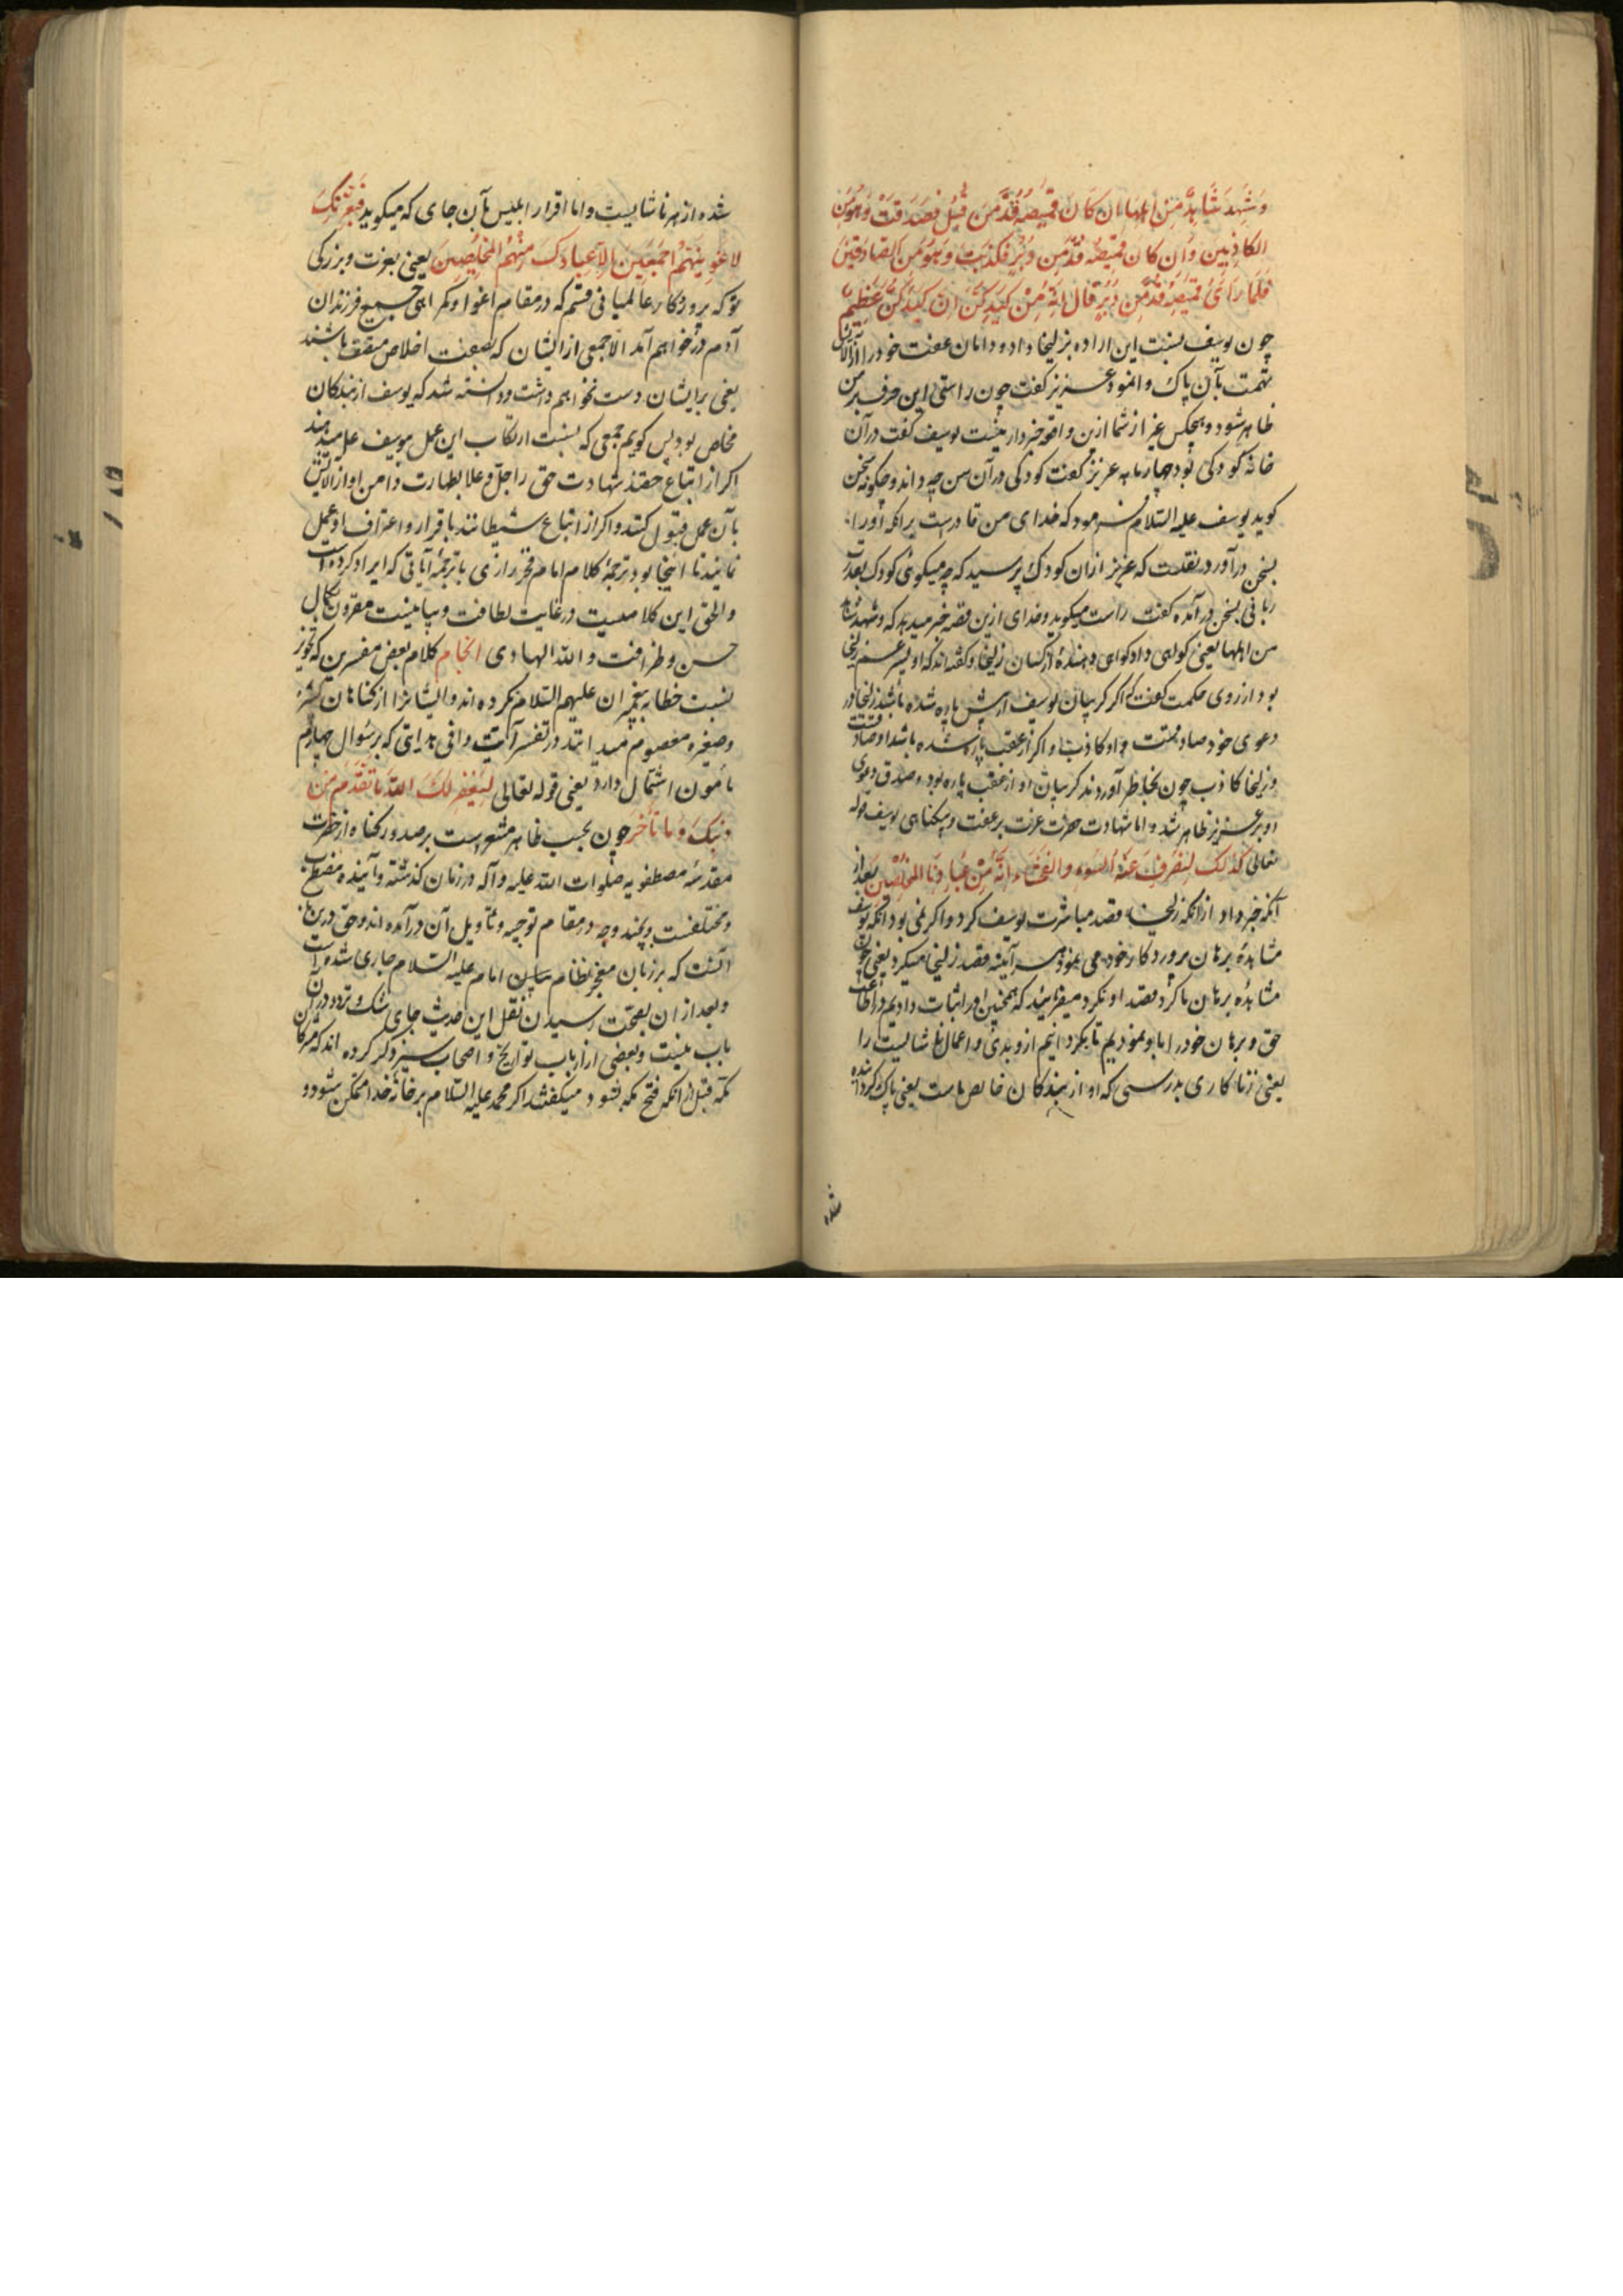 وَشَهِدَ شَاهِدٌ مِنْ اَهْلِهَا اِن كَانَ قَمِيصُهُ قُدَّ مِنْ قُبُلٍ فَصَدَقَتْ وَهُوَ مِنَ
الكَاذِبِينَ وَاِن كَانَ قَمِيصُهُ قُدَّ مِن دُبُرٍ فَكَذَبَتْ وَهُوَ مِنَ الصَادِقِينَ
فَلَمَّا رَأَى قَمِيصَهُ قُدَّ مِن دُبُرٍ قَالَ اِنَّهُ مِنْ كَيْدِكُنَّ اِنَّ كَيْدَكُنَّ عَظِيمٌ
چون یوسف نسبت این اراده بزلیخا داد و دامان عفت خود را از آلایش
تهمت بآن پاک وانمود عزیز کفت چون راستی این حرف بر من
ظاهر شود و هیچکس غیر از شما ازین واقعه خبردار نیست یوسف کفت در آن
خانه کودکی بود چهار ماهه عزیز کفت کودکی در آن سن چه داند و چکونه سخن
کوید یوسف علیه السلام فرمود که خدای من قادرست بر انکه اورا
بسخن درآورد نقلست که عزیز ازان کودک پرسید که چه میکوئی کودک بقدرت
ربانی بسخن درآمده کفت راست میکوید و خدای ازین قصه خبر میدهد که و شهد شاهد
من اهلها یعنی کواهی داد کواهی دهنده از کسان زلیخا و کفته اند که او پسر عم زلیخا
بود از روی حکمت کفت که اکر کریبان یوسف از پیش پاره شده باشد زلیخا در
دعوی خود صادقست و او کاذب و اکر از عقب پاره شده باشد او صادقست
و زلیخا کاذب چون بخاطر آوردند کریبان او از عقب پاره بود و صدق دعوی
او بر عزیز ظاهر شد و اما شهادت حضرت عزت بر عفت و بیکناهی یوسف قوله
تعالی كَذلِكَ لِنَصْرِفَ عَنْهُ السُّوءَ وَالفَحْشَاءَ اِنَّهُ مِنْ عِبَادِنَا المُخْلَصِينَ بعد از
آنکه خبر داد از انکه زلیخا قصد مباشرت یوسف کرد و اکر نمی بود انکه یوسف
مشاهدهٔ برهان پروردکار خود می نمود هر آینه قصد زلیخا میکرد یعنی چون
مشاهدهٔ برهان ما کرد قصد او نکرد میفرماید که همچنین اورا ثبات دادیم در اطاعت
حق و برهان خود را باو نمودیم تا بکردانیم ازو بدی و اعمال ناشایست را
یعنی زناکاری بدرستی که او از بندکان خالص ماست یعنی پاک کردانیده
شده
شده از هر ناشایست و اما اقرار ابلیس بآن جای که میکوید فَبِعِزَّتِكَ
لَاُغْوِيَنَّهُمْ اَجْمَعِينَ اِلَّا عِبَادَكَ مِنْهُمُ المُخْلَصِينَ یعنی بعزت و بزرکی
تو که پروردکار عالمیانی قسم که در مقام اغوا و کمراهی جمیع فرزندان
آدم در خواهم آمد الا جمعی از ایشان که بصفت اخلاص متصف باشند
یعنی بر ایشان دست نخواهم داشت و دانسته شد که یوسف از بندکان
مخلص بود پس کویم جمعی که نسبت ارتکاب این عمل بیوسف علم میدهند
اکر از اتباع حقند شهادت حق را جل و علا بطهارت دامن او از آلایش
بآن عمل قبول کنند و اکر از اتباع شیطانند باقرار و اعتراف او عمل
نمایند تا اینجا بود ترجمهٔ کلام امام فخر رازی با ترجمهٔ آیاتی که ایراد کرده است
والحق این کلامیست در غایت لطافت و بیانیست مقرون بکمال
حسن و ظرافت والله الهادی انجام کلام بعض مفسرین که تجویز
نسبت خطا به پیغمبران علیهم السلام نکرده اند و ایشانرا از کناهان کبیره
و صغیره معصوم میدانند در تفسیر آیت وافی هدایتی که بر سؤال چهارم
مأمون اشتمال دارد یعنی قوله تعالی لِيَغْفِرَ لَكَ اللهُ مَا تَقَدَّمَ مِنْ
ذَنْبِكَ وَمَا تَأَخَّرَ چون بحسب ظاهر مشعر است بر صدور کناه از حضرت
مقدسه مصطفویه صلوات الله علیه و آله در زمان کذشته و آینده مضطرب
و مختلفست و بچند وجه در مقام توجیه و تأویل آن درآمده اند و حق درین باب
آنست که بر زبان معجز نظام امام علیه السلام جاری شده است
و بعد از ان بصحت رسیدن نقل این حدیث جای شک و تردد در آن
باب نیست و بعضی از ارباب تواریخ و اصحاب سیر ذکر کرده اند که مشرکان
مکه قبل از انکه فتح مکه بشود میکفتند اکر محمد علیه السلام بر خانهٔ خدا متمکن شود و